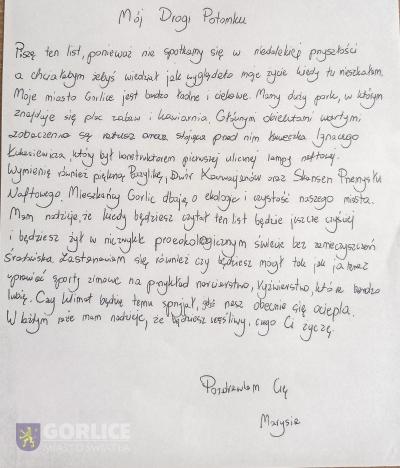 Mój Drogi Potomku
Piszę ten list, ponieważ nie spotkamy się w niedalekiej przyszłości
a chciałabym żebyś wiedział jak wyglądało moje życie kiedy tu mieszkałam.
Moje miasto Gorlice jest bardzo ładne i ciekawe. Mamy duży park, w którym
znajduje się plac zabaw i kawiarnia. Głównymi obiektami wartymi
zobaczenia są ratusz oraz stojąca przed nim ławeczka Ignacego
Łukasiewicza, który był konstruktorem pierwszej ulicznej lampy naftowej.
Wymienię również piękną Bazylikę, Dwór Karwacjanów oraz Skansen Przemysłu
Naftowego. Mieszkańcy Gorlic dbają o ekologię i czystość naszego miasta.
Mam nadzieję, że kiedy będziesz czytał ten list będzie jeszcze czyściej
i będziesz żył w niezwykle proekologicznym świecie bez zanieczyszczeń
środowiska. Zastanawiam się również czy będziesz mógł tak jak ja teraz
uprawiać sporty zimowe na przykład narciarstwo, łyżwiarstwo, które bardzo
lubię. Czy klimat będzie temu sprzyjał, gdyż nasz obecnie się ociepla.
W każdym razie mam nadzieję, że będziesz szczęśliwy, czego Ci życzę.
Pozdrawiam Cię
Marysia
GORLICE
MIASTO ŚWIATŁA